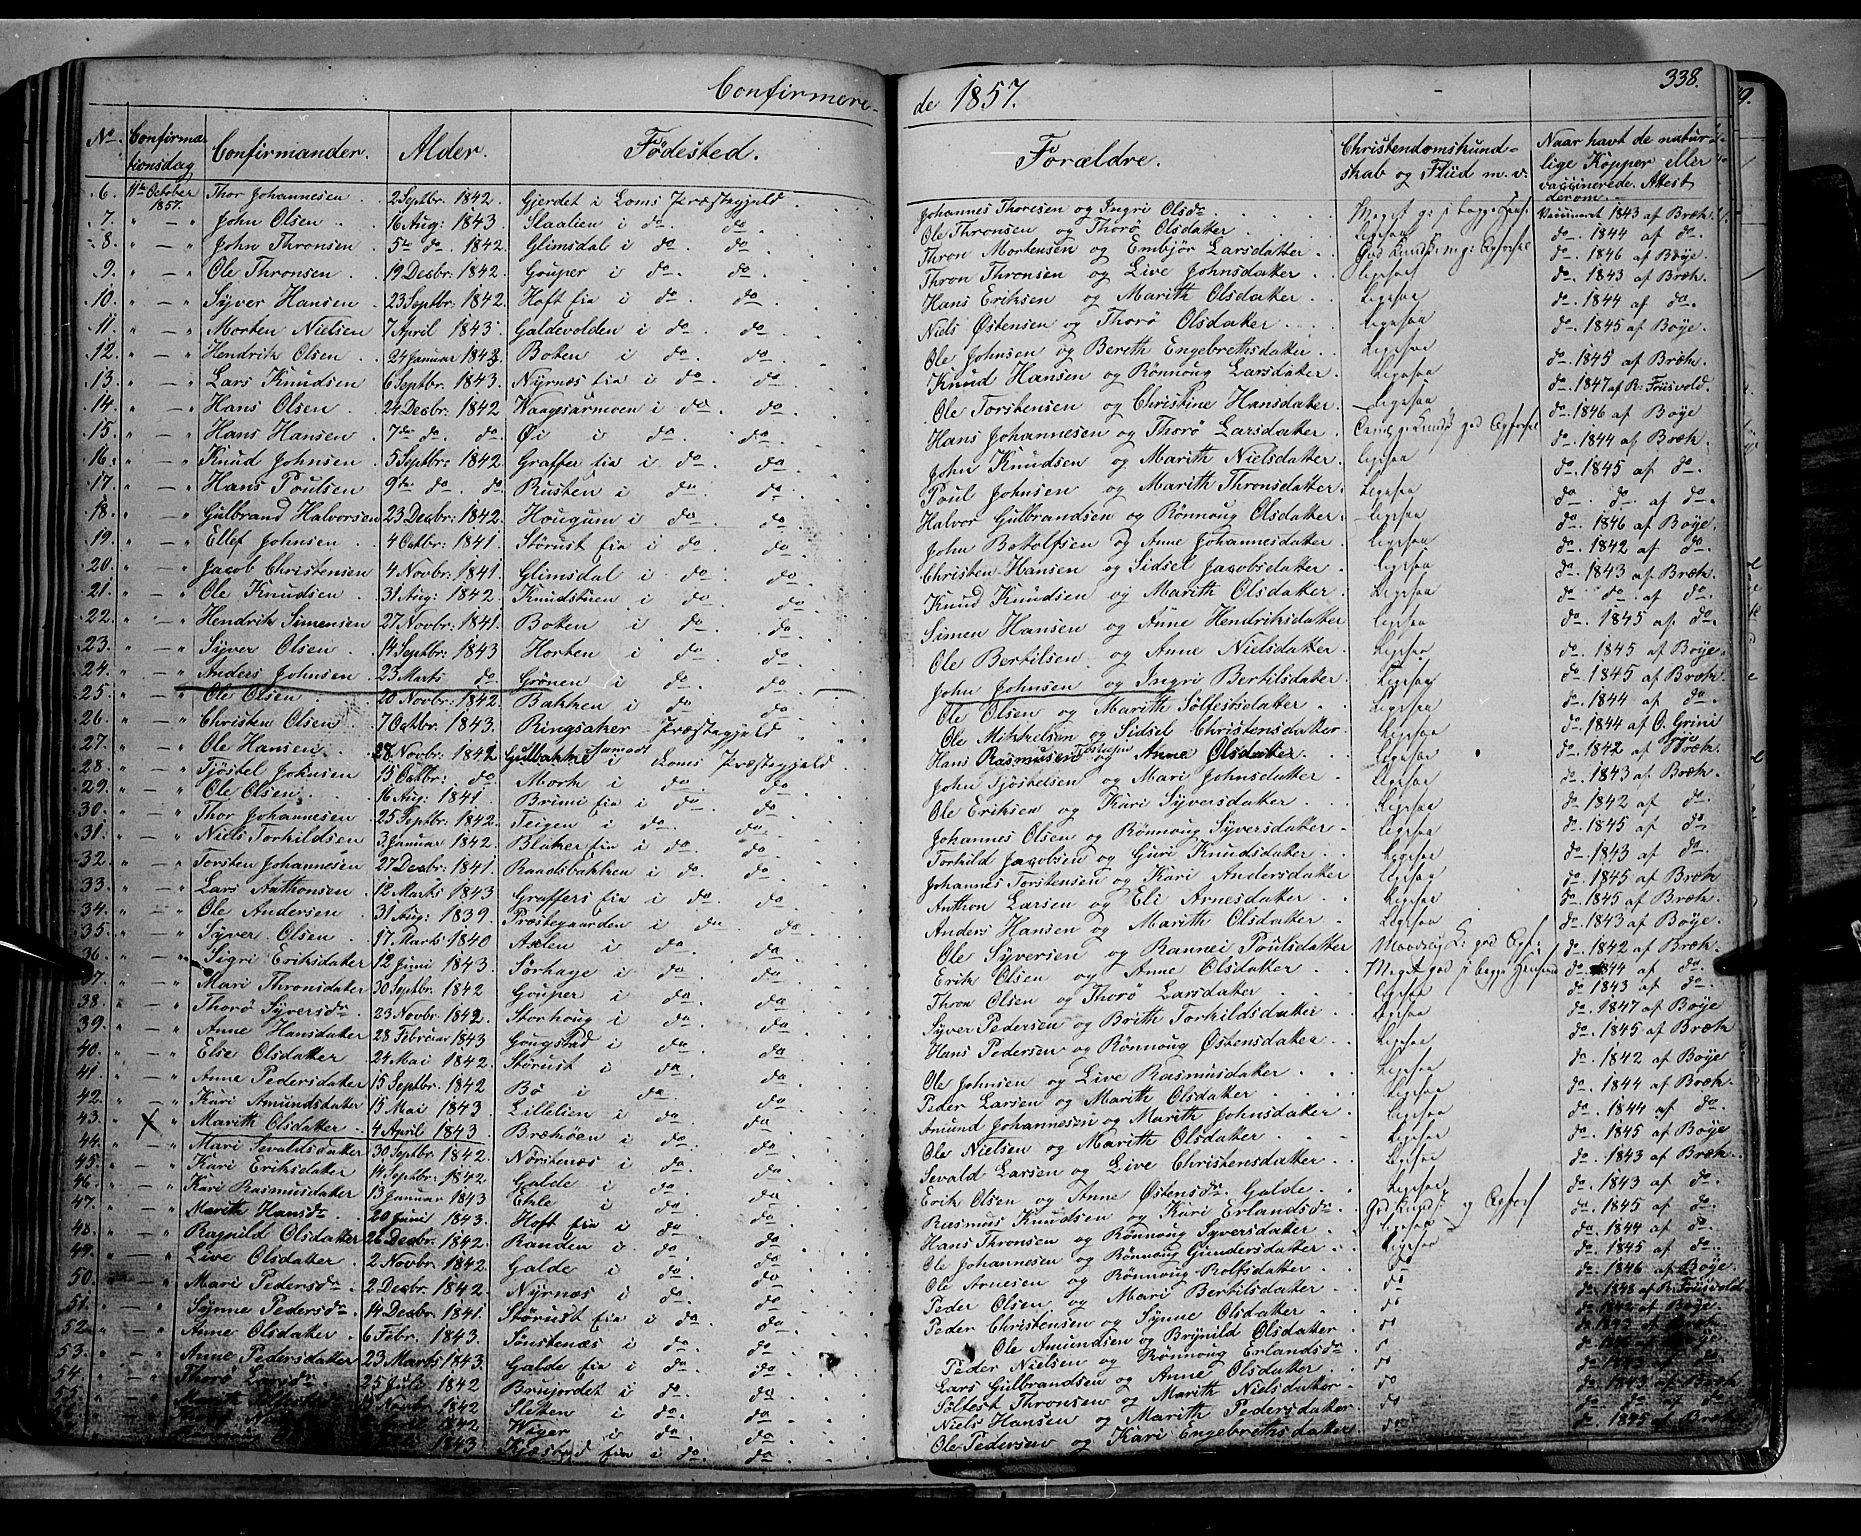 Confirmere-
de 1857.
338.
No Confirma-tionsdag Confirmander. Alder. Fødested. Forældre. Christendomskund-skab og Flid m.v. Naar havt de natur-lige Kopper eller vaccinerede. Attest derom.
6. 11te October 1857. Thor Johannesen 2 Septbr. 1842. Gjerdet i Loms Præstegjeld Johannes Thoresen og Ingri Olsdr Vaccineret 1843 af Bræk
7. " — " John Olsen 16 Aug: 1843 Slaalien i do do Ole Thronsen og Thorø Olsdatter Ligesaa do 1844 af do
8. " — " John Thronsen 5te do 1842. Glimsdal i do do Thron Mortensen og Embjør Larsdatter do 1846 af Boye
9. " — " Ole Thronsen 19 Decbr: 1842. Gouper i do do Thron Thronsen og Live Johnsdatter Ligesaa do 1843 af Bræk
10. " — " Syver Hansen 23 Septbr: 1842. Hoft fra i do do Hans Eriksen og Marith Olsdatter Ligesaa do 1844 af do
11. " — " Morten Nielsen 7 April 1843. Galdevolden i do do Niels Østensen og Thorø Olsdatter Ligesaa do 1845 af Boye
12. " — " Hendrik Olsen 24 Januar 1843. Boken i do do Ole Johnsen og Berith Engebrethsdatter Ligesaa do 1845 af Bræk
13. " — " Lars Knudsen 6 Septbr: 1843. Nyrnæs fra i do do Knud Hansen og Rønnoug Larsdatter Ligesaa do 1847 af R: Friisvold.
14. " — " Hans Olsen 24 Decbr: 1842 Waagsarmoen i do do Ole Torstensen og Christine Hansdatter. Ligesaa do 1846 af Boye
15. " — " Hans Hansen 7de do do Øi i do do Hans Johannesen og Thorø Larsdatter do 1844 af Bræk
16. " — " Knud Johnsen 5 Septbr: 1842. Graffer fra i do do John Knudsen og Marith Nielsdatter Ligesaa do 1845 af do
17. " — " Hans Poulsen 9de do do Rusten i do do Poul Johnsen og Marith Thronsdatter Ligesaa do do af do
18. " — " Gulbrand Halvorsen 23 Decbr: 1842. Hougum i do do Halvor Gulbrandsen og Rønnoug Olsdatter Ligesaa do 1846 af Boye
19. " — " Ellef Johnsen 4 Octbr: 1841. Størust fra i do do John Bottolfsen og Anne Johannesdatter Ligesaa do 1842 af do
20. " — " Jacob Christensen 4 Novbr: 1841. Glimsdal i do do Christen Hansen og Sidsel Jacobsdatter Ligesaa do 1843 af Bræk
21. " — " Ole Knudsen 31 Aug: 1842. Knudstuen i do do Knud Knudsen og Marith Olsdatter Ligesaa do do af do
22. " — " Hendrik Simensen 27 Novbr: 1841. Boken i do do Simen Hansen og Anne Hendriksdatter Ligesaa do 1845 af do
23. " — " Syver Olsen 14 Septbr: 1843 Horten i do do Ole Bertilsen og Anne Nielsdatter Ligesaa do 1845 af Boye
24. " — " Anders Johnsen 25 Marts do Grønen i do do John Johnsen og Ingri Bertilsdatter Ligesaa do 1845 af Bræk
25. " — " Ole Olsen 20 Novbr: 1842 Bakken i do do Ole Olsen og Marith Solfestsdatter Ligesaa do 1844 af do
26. " — " Christen Olsen 7 Octbr. 1843. Ringsaker Præstegjeld Ole Mikkelsen og Sidsel Christensdatter Ligesaa do 1844 af O. Grini
27. " — " Ole Hansen 28 Novbr: 1842 Gulbakke i Loms Præstegjeld Hans Rasmusen og Anne Olsdatter Ligesaa do 1842 af Boye
28. " — " Tjøstel Johnsen 15 Octbr: do Mork i do do John Tjøstelsen og Mari Johnsdatter Ligesaa do 1843 af Bræk
29. " — " Ole Olsen 16 Aug: 1841. Brimi fra i do do Ole Eriksen og Kari Syversdatter Ligesaa do 1842 af do
30. " — " Thor Johannesen 25 Septbr: 1842. Teigen i do do Johannes Olsen og Rønnoug Syversdatter Ligesaa do 1845 af do
31. " — " Niels Torkildsen 3 Januar 1842. Bluker fra i do do Torkild Jacobsen og Guri Knudsdatter Ligesaa do 1843 af do
32. " — " Torsten Johannesen 27 Decbr: 1841. Raadsbakken i do do Johannes Torstensen og Kari Andersdatter Ligesaa do 1845 af Bræk
33. " — " Lars Anthonsen 12 Marts 1843 Graffers fra i do do Anthon Larsen og Eli Arnesdatter Ligesaa do 1845 af Bræk
34. " — " Ole Andersen 31 Aug: 1839. Præstegaarden i do do Anders Hansen og Marith Olsdatter Ligesaa do 1843 af Boye
35. " — " Syver Olsen 17 Marts 1840 Aalen i do do Ole Syversen og Rannei Poulsdatter do 1842 af Bræk
36. " — " Sigri Eriksdatter 12 Juni 1843. Sørhage i do do Erik Olsen og Anne Olsdatter do 1844 af do
37. " — " Mari Thronsdatter 30 Septbr: 1842 Gouper i do do Thron Olsen og Thorø Larsdatter Ligesaa do 1843 af do
38. " — " Thorø Syversdr 23 Novbr. 1842. Storhoug i do do Syver Pedersen og Brith Torkildsdatter Ligesaa do 1847 af Boye
39. " — " Anne Hansdatter 28 Februar 1843 Gougstad i do do Hans Pedersen og Rønnoug Østensdatter Ligesaa do 1845 af Bræk
40. " — " Else Olsdatter 24 Mai 1842. Størust i do do Ole Johnsen og Live Rasmusdatter Ligesaa do 1842 af Boye
41. " — " Anne Pedersdatter 15 Septbr. 1842 Bø i do do Peder Larsen og Marith Olsdatter Ligesaa do 1844 af Bræk
42. " — " Kari Amundsdatter 15 Mai 1843. Lillelien i do do Amund Johannesen og Marith Johnsdatter Ligesaa do 1844 af do
43. " X " Marith Olsdatter 4 April 1843 Brækøen i do do Ole Nielsen og Marith Olsdatter Ligesaa do 1845 af Boye
44. " — " Mari Sevaldsdatter 30 Septbr: 1842. Nørstenæs i do do Sevald Larsen og Live Christensdatter Ligesaa do 1843 af Bræk
45. " — " Kari Eriksdatter 14 Septbr: 1842. Galde i do do Erik Olsen og Anne Østensdr Galde Ligesaa do 1843 af do
46. " — " Kari Rasmusdatter 13 Januar 1843 i do do Rasmus Knudsen og Kari Erlandsdr do 1845 af do
47. " — " Marith Hansdr 20 Juni 1843. Hoft fra i do do Hans Thronsen og Rønnoug Syversdatter Ligesaa do 1844 af do
48. " — " Ragnild Olsdatter 26 Decbr: 1842. Randen i do do Ole Johannesen og Rønnoug Gundersdatter Ligesaa do 1845 af do
49. " — " Live Olsdatter 2 Novbr: 1842. Galde i do do Ole Arnesen og Rønnoug Rolfsdatter do do 1846 af Boye
50. " — " Mari Pedersdr 2 Decbr: 1842 Nyrnæs i do do Peder Olsen og Mari Bertilsdatter do do 1848 af R: Friisvold
51. " — " Synne Pedersdr 14 Decbr: 1841. Størust fra i do do Peder Christensen og Synne Olsdatter do af Boye
52. " — " Anne Olsdatter 6 Febr. 1843. Sønstenæs i do do Ole Amundsen og Brynild Olsdatter do do 1843 af Bræk
53. " — " Anne Pedersdatter 23 Marts 1843. Galde fra i do do Peder Nielsen og Rønnoug Erlandsdr do do af Boye
54. " — " Thorø Larsdr 25 Juli 1842 Brujordet i do do Lars Gulbrandsen og Anne Olsdatter do do 1843 af do
55. " Marith Novbr: 1842 Sletten i do do Solfest Thronsen og Marith Nielsdatter do do 1843 af Bræk
1842 Wiger i do do Niels Hansen og Marith Pedersdatter do do do af do
1843 fra i do do Ole Pedersen og Kari Engebrethsdatter do do 1845 af Bræk